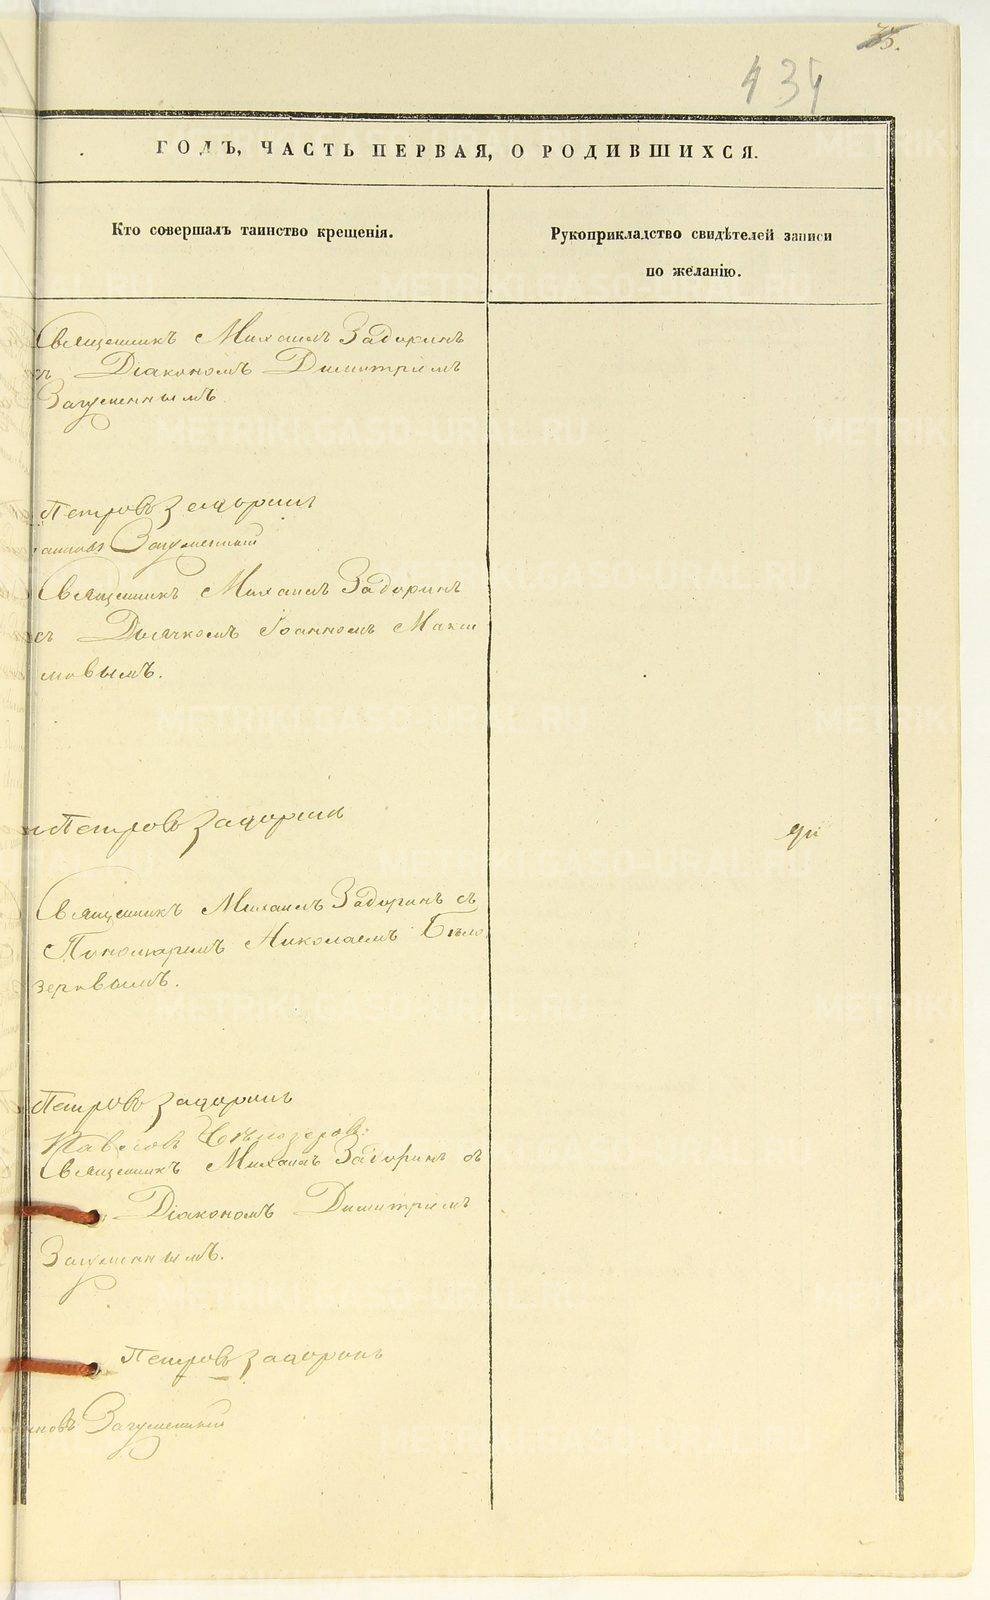 75.
434
ГОДЪ, ЧАСТЬ ПЕРВАЯ, О РОДИВШИХСЯ.
Кто совершалъ таинство крещенія.
Рукоприкладство свидѣтелей записи
по желанію.
Священникъ Михаилъ Задоринъ
съ Діакономъ Димитріемъ
Загуменнымъ.
Петровъ Задоринъ
Загуменный
Священникъ Михаилъ Задоринъ
съ Дьячкомъ Іоанномъ Макси
мовымъ.
Петровъ Задоринъ
Священникъ Михаилъ Задоринъ съ
Пономаремъ Николаемъ Бѣло
зеровымъ.
Петровъ Задоринъ
Бѣлозеровъ
Священникъ Михаилъ Задоринъ съ
Діакономъ Димитріемъ
Загуменнымъ.
Петровъ Задоринъ
новъ Загуменный
METRIKI.GASO-URAL.RU